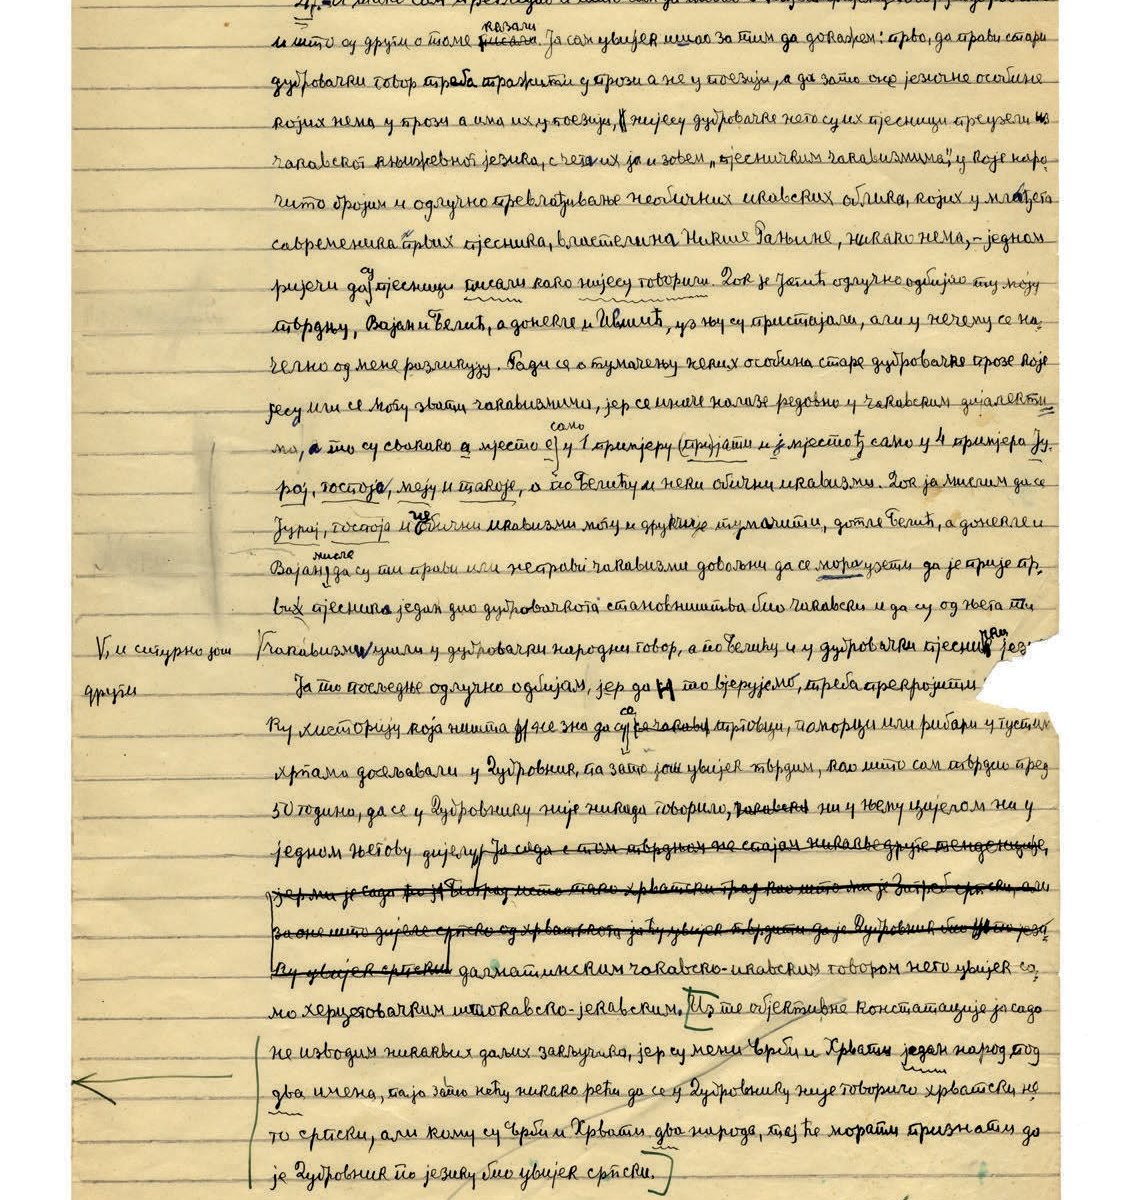 и што су други о томе казали писали. Ја сам увијек ишао за тим да докажем: прво, да прави стари
дубровачки говор треба тражити у прози а не у поезији, а да зато оне језичне особине
којих нема у прози а има их у поезији, нијесу дубровачке него су их пјесници преузели из
чакавског књижевног језика, с чега их ја и зовем „пјесничким чакавизмима", у које наро-
чито бројим и одлучно превлађивање необичних икавских облика, којих у млађега
савременика првих пјесника, властелина Никше Рањине, никако нема, – једном
ријечи да су пјесници писали како нијесу говорили. Док је Јагић одлучно одбијао ту моју
тврдњу, Вајан и Белић, а донекле и Ившић, уз њу су пристајали, али у нечему се на-
челно од мене разликују. Ради се о тумачењу неких особина старе дубровачке прозе које
јесу или се могу звати чакавизмима, јер се иначе налазе редовно у чакавским дијалекти-
ма, а то су свакако а мјесто е само у 1 примјеру (пријати и ј мјесто ђ само у 4 примјера Ју-
рај, госпоја, меју и такоје, а по Белићу и неки обични икавизми. Док ја мислим да се
Јурај, госпоја и обични икавизми могу и друкчије тумачити, дотле Белић, а донекле и
Вајан мисле да су ти прави или неправи чакавизми довољни да се мора узети да је прије пр-
вих пјесника један дио дубровачкога становништва био чакавски и да су од њега ти
V, и сигурно још
други
чакавизми ушли у дубровачки народни говор, а по Белићу и у дубровачки пјеснички јез
Ја то посљедње одлучно одбијам, јер да то вјерујемо, треба прекројити
ку хисторију која ништа не зна да су се чакавци трговци, поморци или рибари у густим
хрпама досељавали у Дубровник, па зато још увијек тврдим, као што сам тврдио пред
50 година, да се у Дубровнику није никада говорило, чакавски ни у њему цијелом ни у
једном његову дијелу, Ја сада с том тврдњом не стајам никакве друге тенденције,
јер ми је сада Београд исто тако хрватски град као што ми је Загреб српски, али
за оне што дијеле српско од хрватскога ја ћу увијек тврдити да је Дубровник био по јези-
ку увијек српски далматинским чакавско-икавским говором него увијек са-
мо херцеговачким штокавско-јекавским. [Из те објективне констатације ја сада
не изводим никаквих даљих закључака, јер су мени Срби и Хрвати један народ под
два имена, па ја зато нећу никако рећи да се у Дубровнику није говорило хрватски не-
го српски, али кому су Срби и Хрвати два народа, тај ће морати признати да
је Дубровник по језику био увијек српски.]